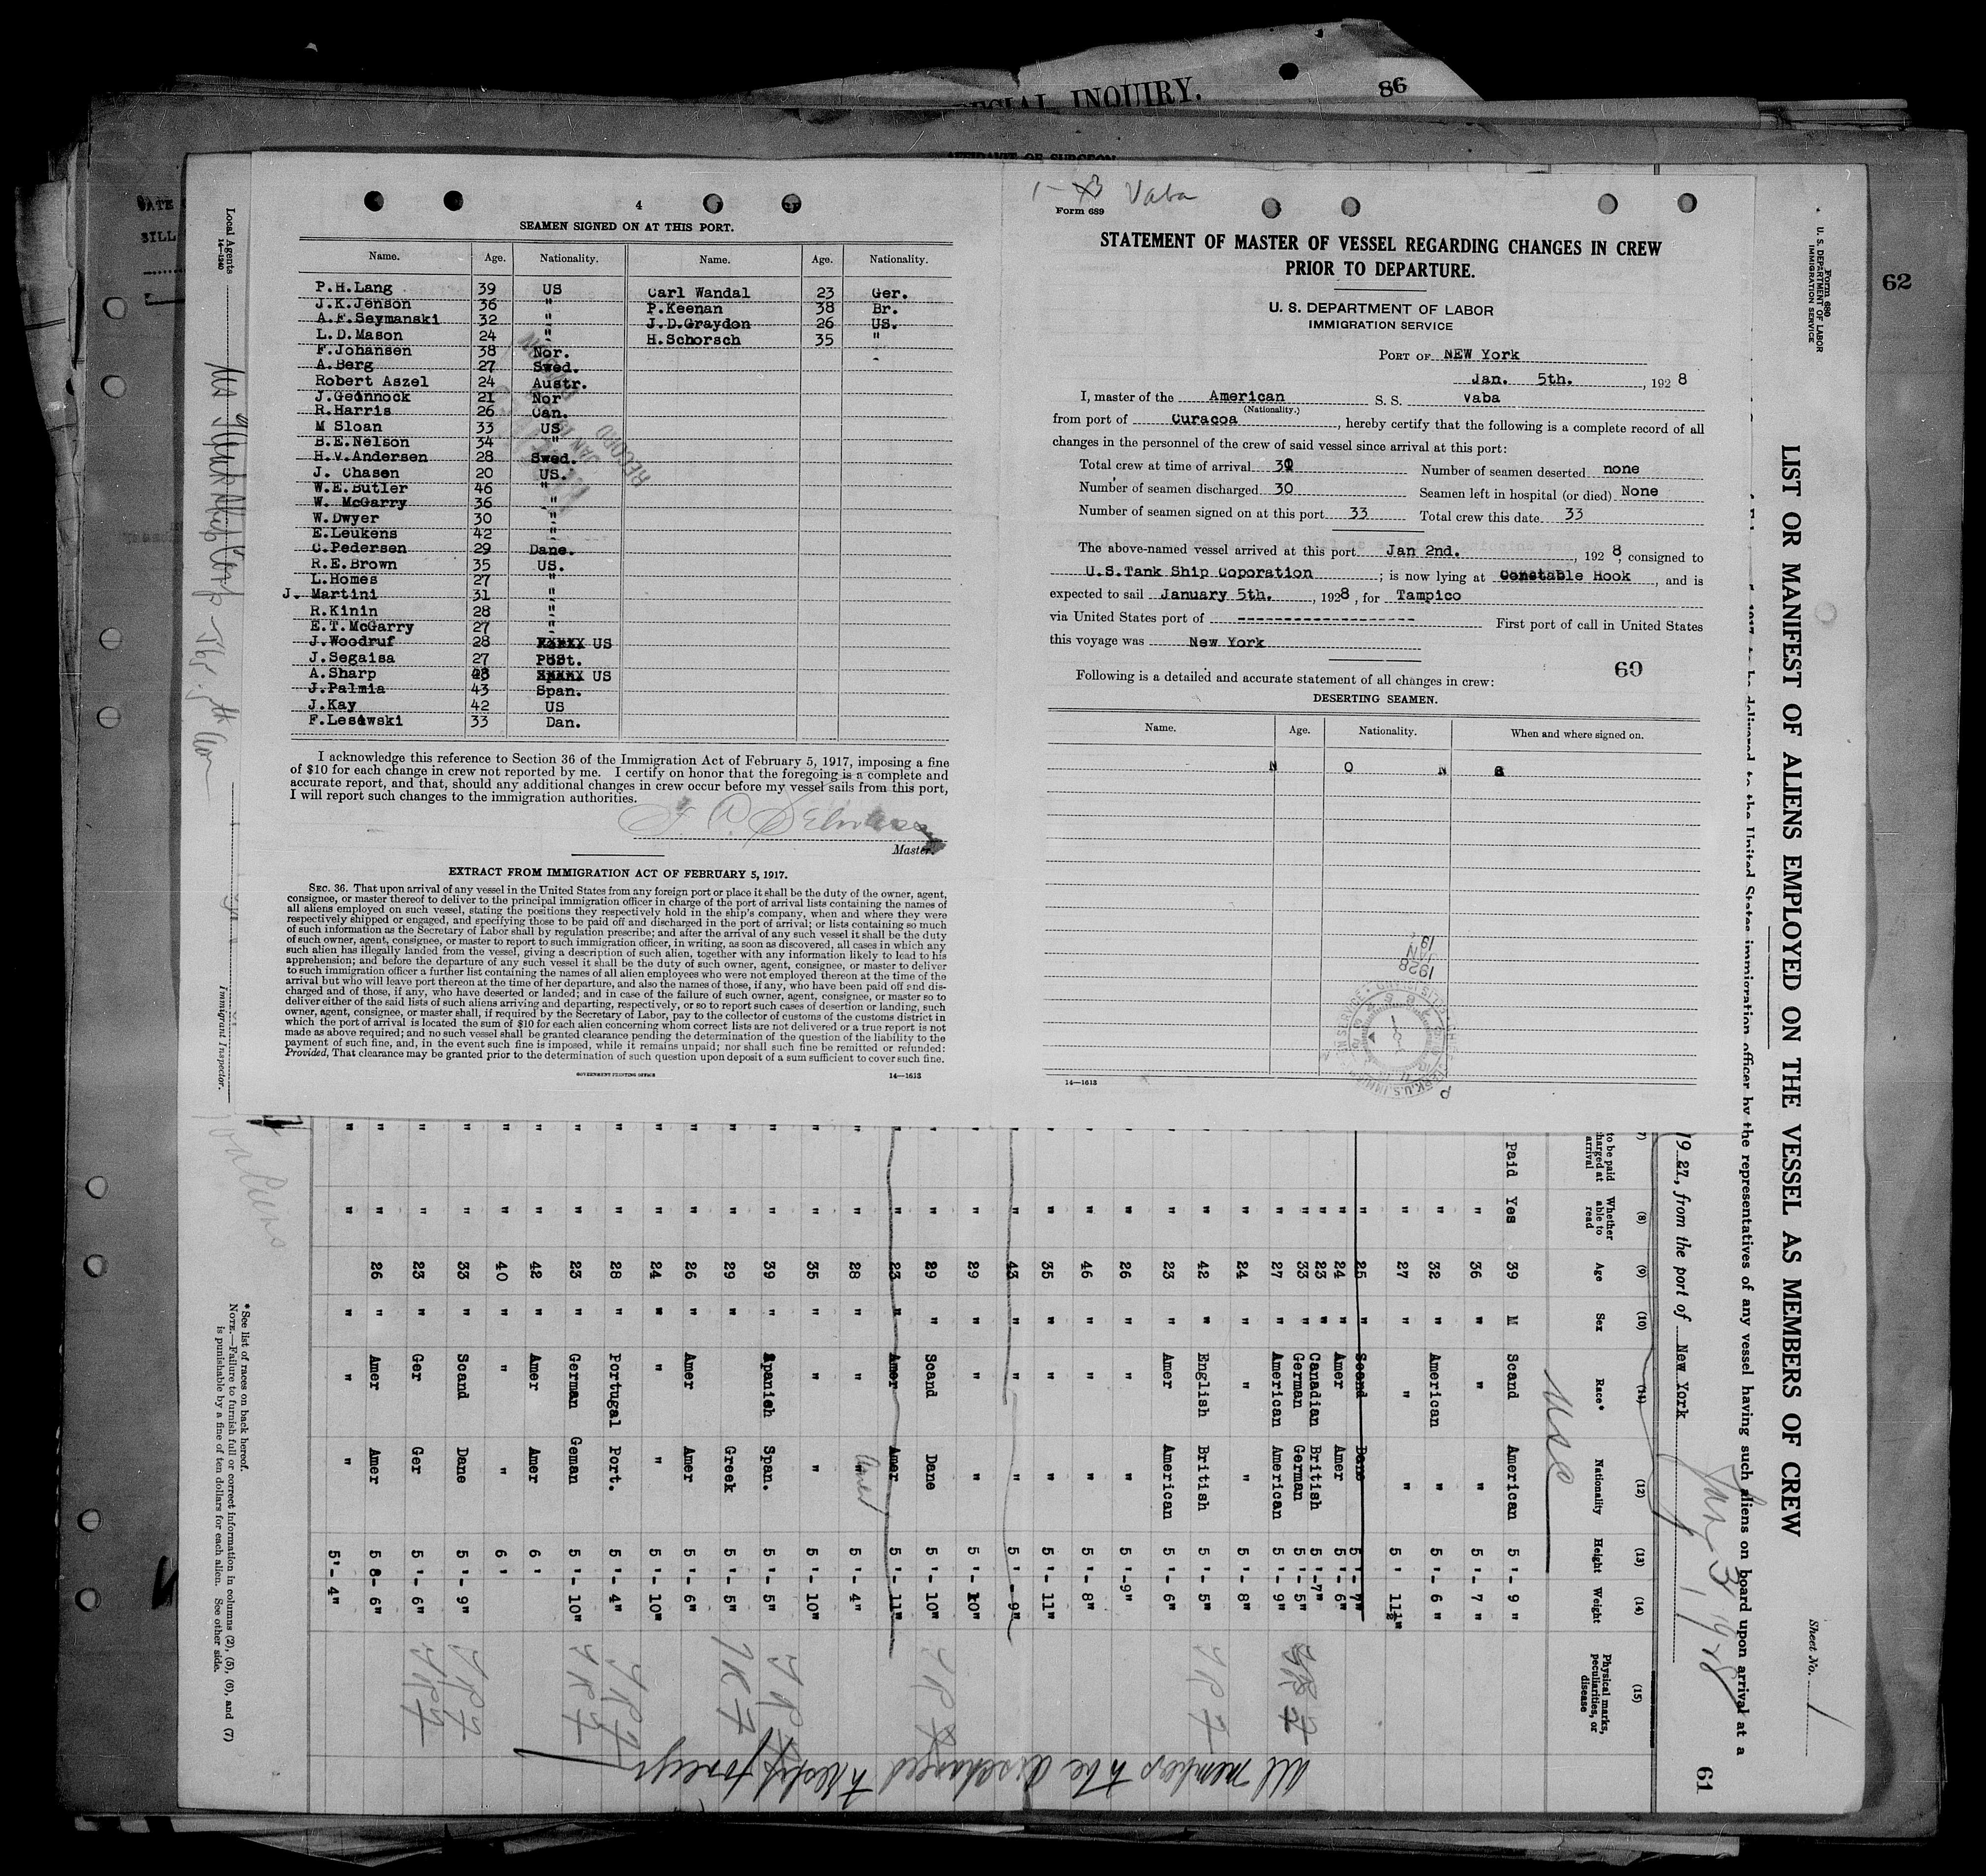 SPECIAL INQUIRY.
86
AFFIDAVIT OF SURGEON
62
4
SEAMEN SIGNED ON AT THIS PORT.
Name. Age. Nationality. Name. Age. Nationality.
P.H.Lang 39 US Carl Wandal 23 Ger.
J.K.Jenson 36 " P.Keenan 38 Br.
A.F.Seymanski 32 " J.D.Graydon 26 US.
L.D.Mason 24 " H.Schorsch 35 "
F.Johansen 38 Nor.
A.Berg 27 Swed.
Robert Aszel 24 Austr.
J.Geinnock 21 Nor
R.Harris 26 Can.
M Sloan 33 US
B.E.Nelson 34 "
H.V.Andersen 28 Swed.
J. Chasen 20 US.
W.E.Butler 46 "
W. McGarry 36 "
W.Dwyer 30 "
E.Leukens 42 "
C.Pedersen 29 Dane.
R.E.Brown 35 US.
L.Homes 27 "
J. Martini 31 "
R.Kinin 28 "
E.T.McGarry 27 "
J.Woodruf 28 US
J.Segaisa 27 Port.
A.Sharp 48 US
J.Palmia 43 Span.
J.Kay 42 US
F.Lesewski 33 Dan.
I acknowledge this reference to Section 36 of the Immigration Act of February 5, 1917, imposing a fine
of $10 for each change in crew not reported by me. I certify on honor that the foregoing is a complete and
accurate report, and that, should any additional changes in crew occur before my vessel sails from this port,
I will report such changes to the immigration authorities.
Master.
EXTRACT FROM IMMIGRATION ACT OF FEBRUARY 5, 1917.
SEC. 36. That upon arrival of any vessel in the United States from any foreign port or place it shall be the duty of the owner, agent,
consignee, or master thereof to deliver to the principal immigration officer in charge of the port of arrival lists containing the names of
all aliens employed on such vessel, stating the positions they respectively hold in the ship's company, when and where they were
respectively shipped or engaged, and specifying those to be paid off and discharged in the port of arrival; or lists containing so much
of such information as the Secretary of Labor shall by regulation prescribe; and after the arrival of any such vessel it shall be the duty
of such owner, agent, consignee, or master to report to such immigration officer, in writing, as soon as discovered, all cases in which any
such alien has illegally landed from the vessel, giving a description of such alien, together with any information likely to lead to his
apprehension; and before the departure of any such vessel it shall be the duty of such owner, agent, consignee, or master to deliver
to such immigration officer a further list containing the names of all alien employees who were not employed thereon at the time of the
arrival but who will leave port thereon at the time of her departure, and also the names of those, if any, who have been paid off and dis-
charged and of those, if any, who have deserted or landed; and in case of the failure of such owner, agent, consignee, or master so to
deliver either of the said lists of such aliens arriving and departing, respectively, or so to report such cases of desertion or landing, such
owner, agent, consignee, or master shall, if required by the Secretary of Labor, pay to the collector of customs of the customs district in
which the port of arrival is located the sum of $10 for each alien concerning whom correct lists are not delivered or a true report is not
made as above required; and no such vessel shall be granted clearance pending the determination of the question of the liability to the
payment of such fine, and, in the event such fine is imposed, while it remains unpaid; nor shall such fine be remitted or refunded:
Provided, That clearance may be granted prior to the determination of such question upon deposit of a sum sufficient to cover such fine.
GOVERNMENT PRINTING OFFICE 14—1613
Vaba
Form 689
STATEMENT OF MASTER OF VESSEL REGARDING CHANGES IN CREW
PRIOR TO DEPARTURE.
U. S. DEPARTMENT OF LABOR
IMMIGRATION SERVICE
PORT OF NEW York
Jan. 5th., 192 8
I, master of the American S. S. Vaba
(Nationality.)
from port of Curacoa, hereby certify that the following is a complete record of all
changes in the personnel of the crew of said vessel since arrival at this port:
Total crew at time of arrival 30 Number of seamen deserted none
Number of seamen discharged 30 Seamen left in hospital (or died) None
Number of seamen signed on at this port 33 Total crew this date 33
The above-named vessel arrived at this port Jan 2nd., 192 8, consigned to
U.S.Tank Ship Coporation; is now lying at Constable Hook, and is
expected to sail January 5th., 1928, for Tampico
via United States port of ------------------- First port of call in United States
this voyage was New York
60
Following is a detailed and accurate statement of all changes in crew:
DESERTING SEAMEN.
Name. Age. Nationality. When and where signed on.
N O N
JAN
1928
14—1613
Form 680
U. S. DEPARTMENT OF LABOR
IMMIGRATION SERVICE
LIST OR MANIFEST OF ALIENS EMPLOYED ON THE VESSEL AS MEMBERS OF CREW
Sheet No. 1
to the United States immigration officer by the representatives of any vessel having such aliens on board upon arrival at a
1927, from the port of New York
Jan 3, 1928
61
(8) (9) (10) (11) (12) (13) (14) (15)
to be paid
arrival
Whether able to read
Age
Sex
Race*
Nationality
Height
Weight
Physical marks, peculiarities, or disease
Paid Yes 39 M Scand American 5'-9"
" 36 " " " 5'-7"
" 32 " American " 5'-6"
" 27 " " " 5' 11½"
" 25 " Scand Dane 5'-7"
" 24 " Amer Amer 5'-6"
" 23 " Canadian British 5'-7"
" 33 " German German 5'-5"
" 27 " American American 5'-9"
" 24 " " " 5'-8"
" 42 " English British 5'-5"
" 23 " Amer American 5'-6"
" 26 " " " 5'-9"
" 46 " " " 5'-8"
" 35 " " " 5'-11"
" 43 " " " 5'-9"
" 29 " " " 5'-10"
" 29 " Scand Dane 5'-10"
" 23 " Amer Amer 5'-11"
" 28 " " 5'-4"
" 35 " " " 5'-10"
" 39 " Spanish Span. 5'-5"
" 29 " Greek 5'-5"
" 26 " Amer Amer 5'-6"
" 24 " " " 5'-10"
" 28 " Portugal Port. 5'-4"
" 23 " German Geman 5'-10"
" 42 " Amer Amer 6'
" 40 " " " 6'
" 33 " Scand Dane 5'-9"
" 23 " Ger Ger 5'-6"
" 26 " Amer Amer 5 8-6"
" " " " 5'-4"
All members to be discharged
*See list of races on back hereof.
NOTE.—Failure to furnish full or correct information in columns (2), (5), (6), and (7)
is punishable by a fine of ten dollars for each alien. See other side.
Local Agents
Immigrant Inspector.